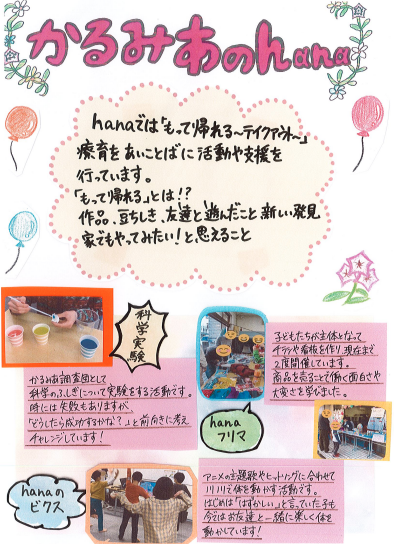 かるみあのhana
hanaでは「もって帰れる〜テイクアウト〜」
療育をあいことばに活動や支援を
行っています。
「もって帰れる」とは!?
作品、豆ちしき、友達と遊んだこと 新しい発見
家でもやってみたい!と思えること
科学実験
かるみあ調査団として
科学のふしぎについて実験をする活動です。
時には失敗もありますが
「どうしたら成功するかな?」と前向きに考え
チャレンジしています!
子どもたちが主体となって
チラシや看板を作り、現在まで
2度開催しています。
商品を売ることで働く面白さや
大変さを学びました。
hana
フリマ
hanaの
ビクス
アニメの主題歌やヒットソングに合わせて
ノリノリで体を動かす活動です。
はじめは「はずかしい」と言っていた子も
今ではお友達と一緒に楽しく体を
動かしています!